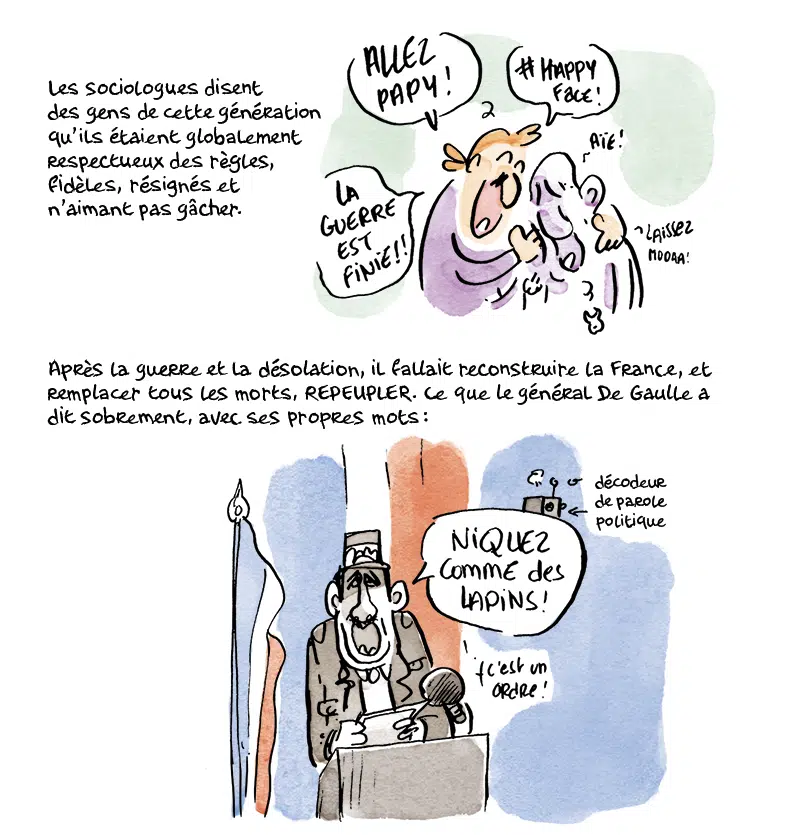 Les sociologues disent
des gens de cette génération
qu'ils étaient globalement
respectueux des règles,
fidèles, résignés et
n'aimant pas gâcher.
ALLEZ
PAPY !
# HAPPY
FACE !
AÏE !
LA
GUERRE
EST
FINIE !!
LAISSEZ
MOOAA !
Après la guerre et la désolation, il fallait reconstruire la France, et
remplacer tous les morts, REPEUPLER. Ce que le général De Gaulle a
dit sobrement, avec ses propres mots :
décodeur
de parole
politique
NIQUEZ
COMME des
LAPINS !
c'est un
ORDRE !